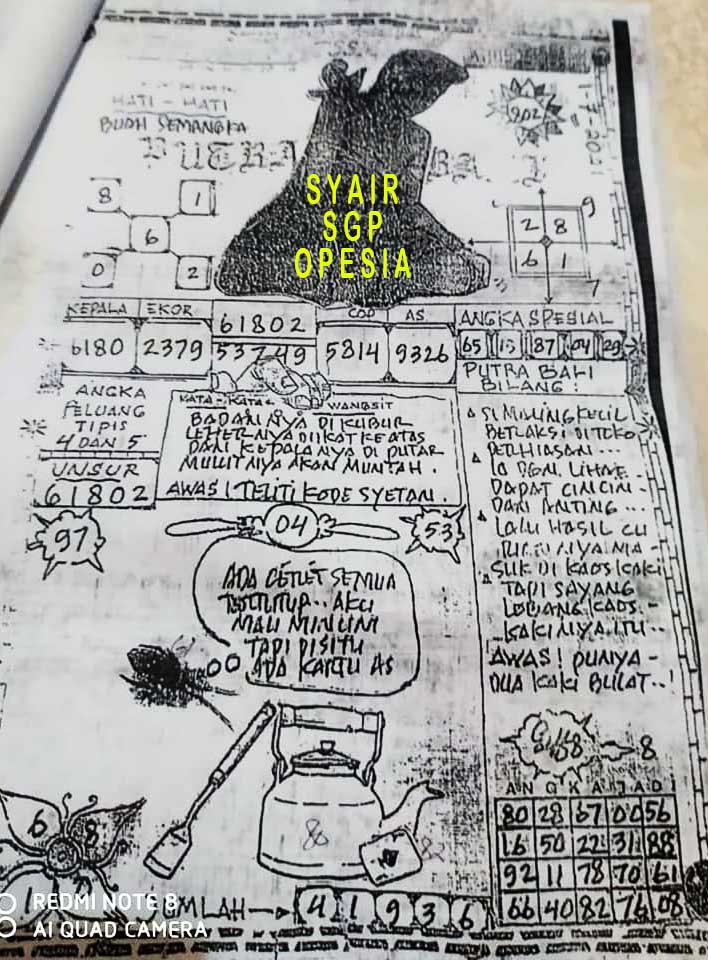 HATI - HATI
BUAH SEMANGKA
PUTRA
SYAIR
SGP
OPESIA
902
1-7-2021
8 1
6
0 2
9
2 8
6 1
7
KEPALA EKOR
6180 2379
61802
53749
COP AS
5814 9326
ANGKA SPESIAL
65 13 87 04 29
PUTRA BALI
BILANG :
ANGKA
PELUANG
TIPIS
4 DAN 5
UNSUR
61802
KATA - KATA WANGSIT
BADANNYA DI KUBUR
LEHERNYA DIIKAT KEATAS
DAN KEPALANYA DI PUTAR
MULUTNYA AKAN MUNTAH .
AWAS ! TELITI KODE SYETAN .
SI MALING KECIL
BERAKSI DI TOKO
PERHIASAN ...
DAPAT CINCIN -
DAN ANTING ...
LALU HASIL CU
RIANNYA MA -
SUK DI KAOS KAKI
TAPI SAYANG
LOBANG KAOS -
KAKINYA ITU ..
AWAS ! PUNYA -
DUA KAKI BULAT ..!
97
04
53
ADA CERET SEMUA
TERTUTUP .. AKU
MAU MINUM
TAPI DISITU
ADA KARTU AS
8
80
82
6 8
ANGKA JADI
80 28 67 00 56
16 50 22 31 88
92 11 78 70 61
66 40 82 76 08
JUMLAH 4 1 9 3 6
REDMI NOTE 8
AI QUAD CAMERA